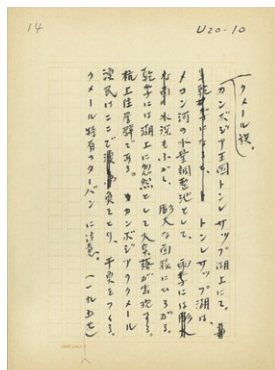 14
U20-10
クメール族。
カンボジア王国トンレサップ湖上にて。
トンレサップ湖は、
メコン河の水量調整池として、雨季には
水深もふかく、膨大な面積にひろがる。
乾季には湖上に忽然として大集落が出現する。
杭上住居群である。カンボジアクメール
漁民はここで漁をとり、干魚をつくる。
クメール特有のターバンに注意。(一九五七)